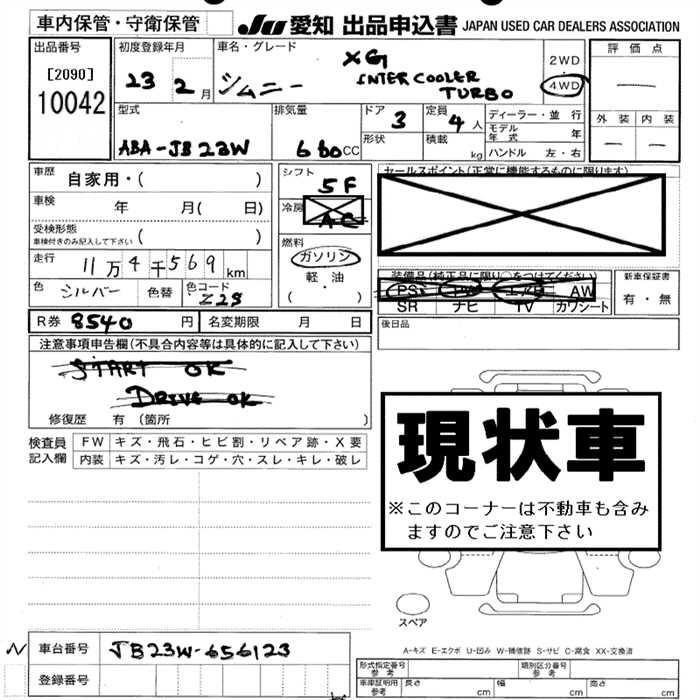 車内保管・守衛保管 JU 愛知 出品申込書 JAPAN USED CAR DEALERS ASSOCIATION
出品番号
[2090]
10042
初度登録年月
23 2月
車名・グレード
ジムニー
XG
INTER COOLER
TURBO
2WD
4WD
評価点
外装 内装
型式
ABA-JB23W
排気量
660cc
ドア 3
形状
定員 4人
積載 kg
ディーラー・並行
モデル年式 年
ハンドル 左・右
車歴 自家用・( )
車検 年 月( 日)
受検形態
車検付きのみ記入して下さい ( )
走行 11万4千569km
色 シルバー 色替 色コード Z2S
シフト 5F
冷房 AC
燃料
ガソリン
軽・油
( ・ )
セールスポイント(正常に機能するものに限ります)
装備品(純正品に限り○をつけてください)
PS PW エアB AW
SR ナビ TV カワシート
新車保証書
有・無
R券 8540円 名変期限 月 日
後日品
注意事項申告欄(不具合内容等は具体的に記入して下さい)
START OK
DRIVE OK
修復歴 有(箇所 )
検査員
記入欄
FW キズ・飛石・ヒビ割・リペア跡・X要
内装 キズ・汚レ・コゲ・穴・スレ・キレ・破レ
現状車
※このコーナーは不動車も含み
ますのでご注意下さい
スペア
A-キズ E-エクボ U-凹み W-補修跡 S-サビ C-腐食 XX-交換済
N 車台番号 JB23W-656123
登録番号
形式指定番号
参考
類別区分番号
参考
車庫証明用
参考
長さ cm 幅 cm 高さ cm